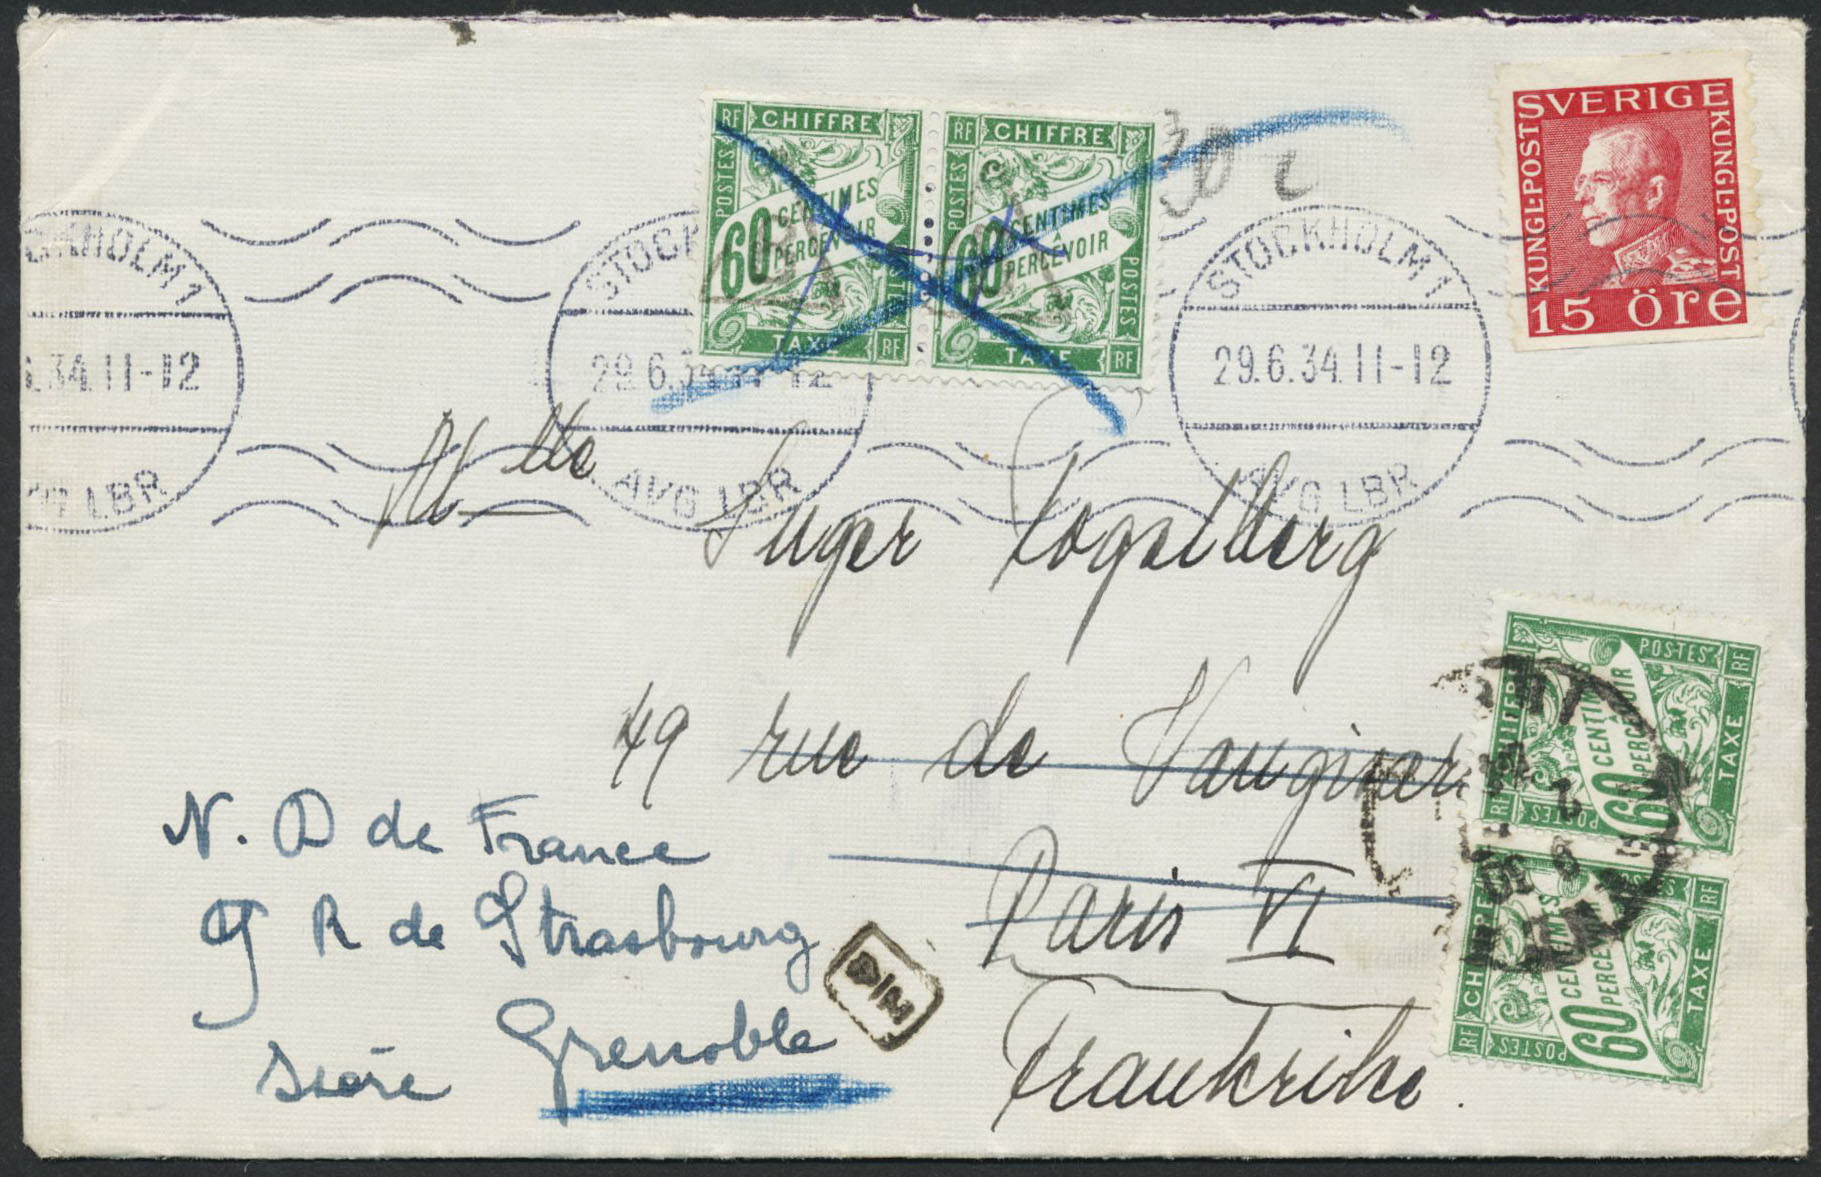 SVERIGE
KUNGL·POST
KUNGL·POST
15 öre
RF CHIFFRE
POSTES
60 CENTIMES
À PERCEVOIR
POSTES
TAXE RF
RF CHIFFRE
POSTES
60 CENTIMES
À PERCEVOIR
POSTES
TAXE RF
HOLM 1
.34.11-12
AVG LBR
STOCK
29.6.34.11-12
AVG LBR
STOCKHOLM 1
29.6.34.11-12
AVG LBR
Mlle
Inger Fogelberg
49 rue de Vaugirar
Paris VI
Frankrike.
N. D de France
9 R de Strasbourg
Grenoble
Isère
RF CHIFFRE
POSTES
60 CENTIMES
À PERCEVOIR
POSTES
TAXE RF
RF CHIFFRE
POSTES
60 CENTIMES
À PERCEVOIR
POSTES
TAXE RF